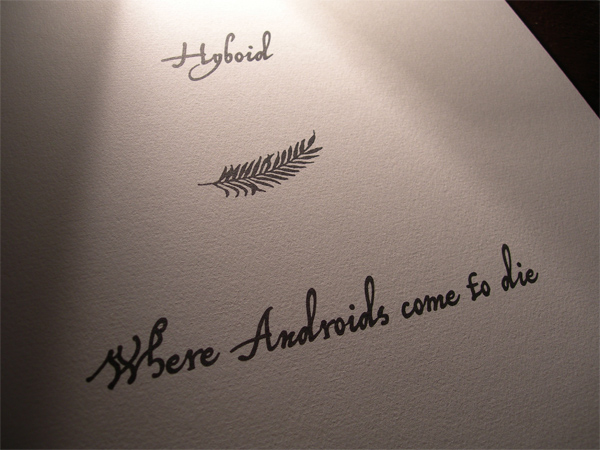 Hyboid
Where Androids come to die